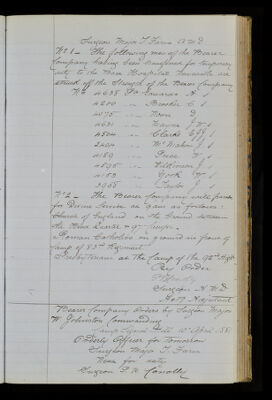 Surgeon Major T. Faris A.M.D.
No 1 — The following men of the Bearer
Company having been transferred for temporary
duty to the Base Hospital Newcastle are
struck off the Strength of the Bearer Company
No 4638 Pte Edwards H
4200 — Brooker C
4075 — Moon G
4631 —
4504 — Clarke
2404 — McMahon J
4159 —
4595 —
4153 — Cook W
3055 — Taylor J
No 2 — The Bearer Company will parade
for Divine Service at 9 am as follows
Church of England on the Ground between
the Blue Guard &
Roman Catholics on ground in front of
Camp of 83rd Regiment
Presbyterians at the Camp of the 92nd Regt
By Order
Surgeon A.M.D.
Actg Adjutant
Bearer Company Orders by Surgeon Major
W Johnston Commanding
Camp 10th April 1881
Orderly Officer for tomorrow
Surgeon Major T. Faris
Next for duty
Surgeon Connolly